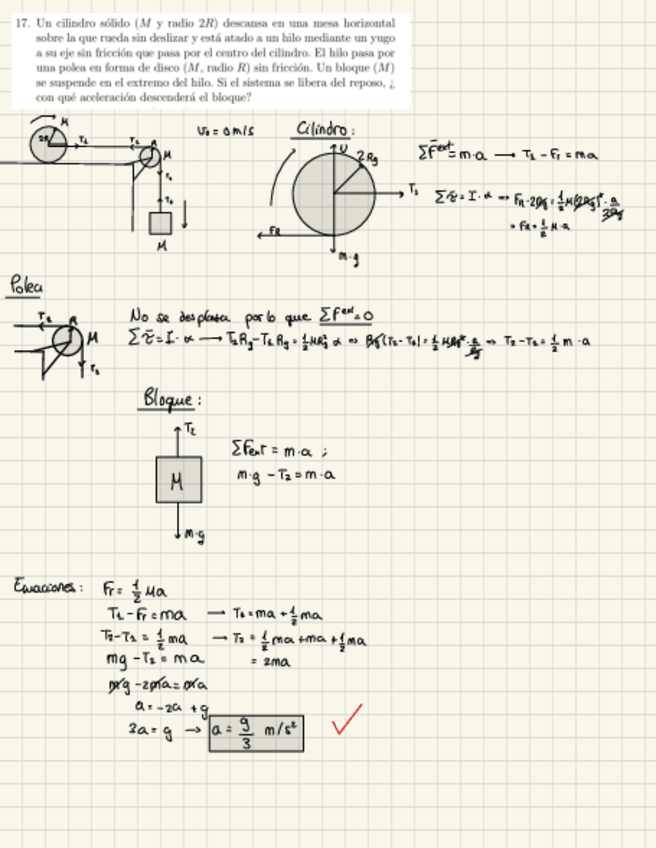 17. Un cilindro sólido (M y radio 2R) descansa en una mesa horizontal
sobre la que rueda sin deslizar y está atado a un hilo mediante un yugo
a su eje sin fricción que pasa por el centro del cilindro. El hilo pasa por
una polea en forma de disco (M, radio R) sin fricción. Un bloque (M)
se suspende en el extremo del hilo. Si el sistema se libera del reposo, ¿
con qué aceleración descenderá el bloque?
M
2R
T₁
R
M
M
V₀ = 0 m/s
Cilindro:
N
2Rg
T₁
FR
m·g
ΣF^ext = m·a → T₁ - Fr = ma
Στ = I·α ⇒ FR·2Rg = 1/2 M(2Rg)² · a/2Rg
FR = 1/2 M·a
Polea
R
M
No se desplaza por lo que ΣF^ext = 0
Στ = I·α → T₂Rg - T₁Rg = 1/2 MRg² α ⇒ Rg(T₂-T₁) = 1/2 MRg² · a/Rg ⇒ T₂-T₁ = 1/2 m·a
Bloque:
T₂
M
m·g
ΣFext = m·a ;
m·g - T₂ = m·a
Ecuaciones: Fr = 1/2 Ma
T₁ - Fr = ma → T₁ = ma + 1/2 ma
T₂-T₁ = 1/2 ma → T₂ = 1/2 ma + ma + 1/2 ma
mg - T₂ = ma = 2ma
mg - 2ma = ma
a = -2a + g
3a = g → a = g/3 m/s²